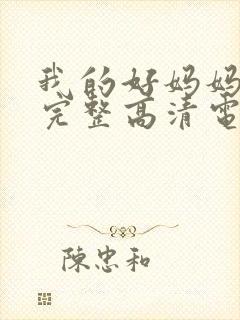 我的好妈妈
完整高清電
陳忠和